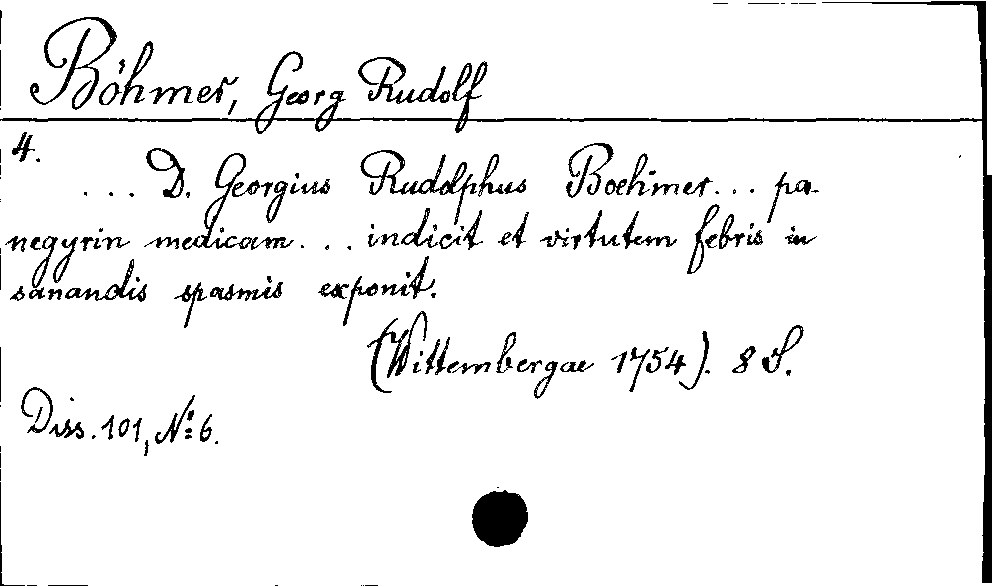 Böhmer, Georg Rudolf
4.
... D. Georgius Rudolphus Boehmer... pa-
negyrin medicam... indicit et virtutem febris in
sanandis spasmis exponit.
(Wittembergae 1754). 8 S.
Diss. 101, No 6.